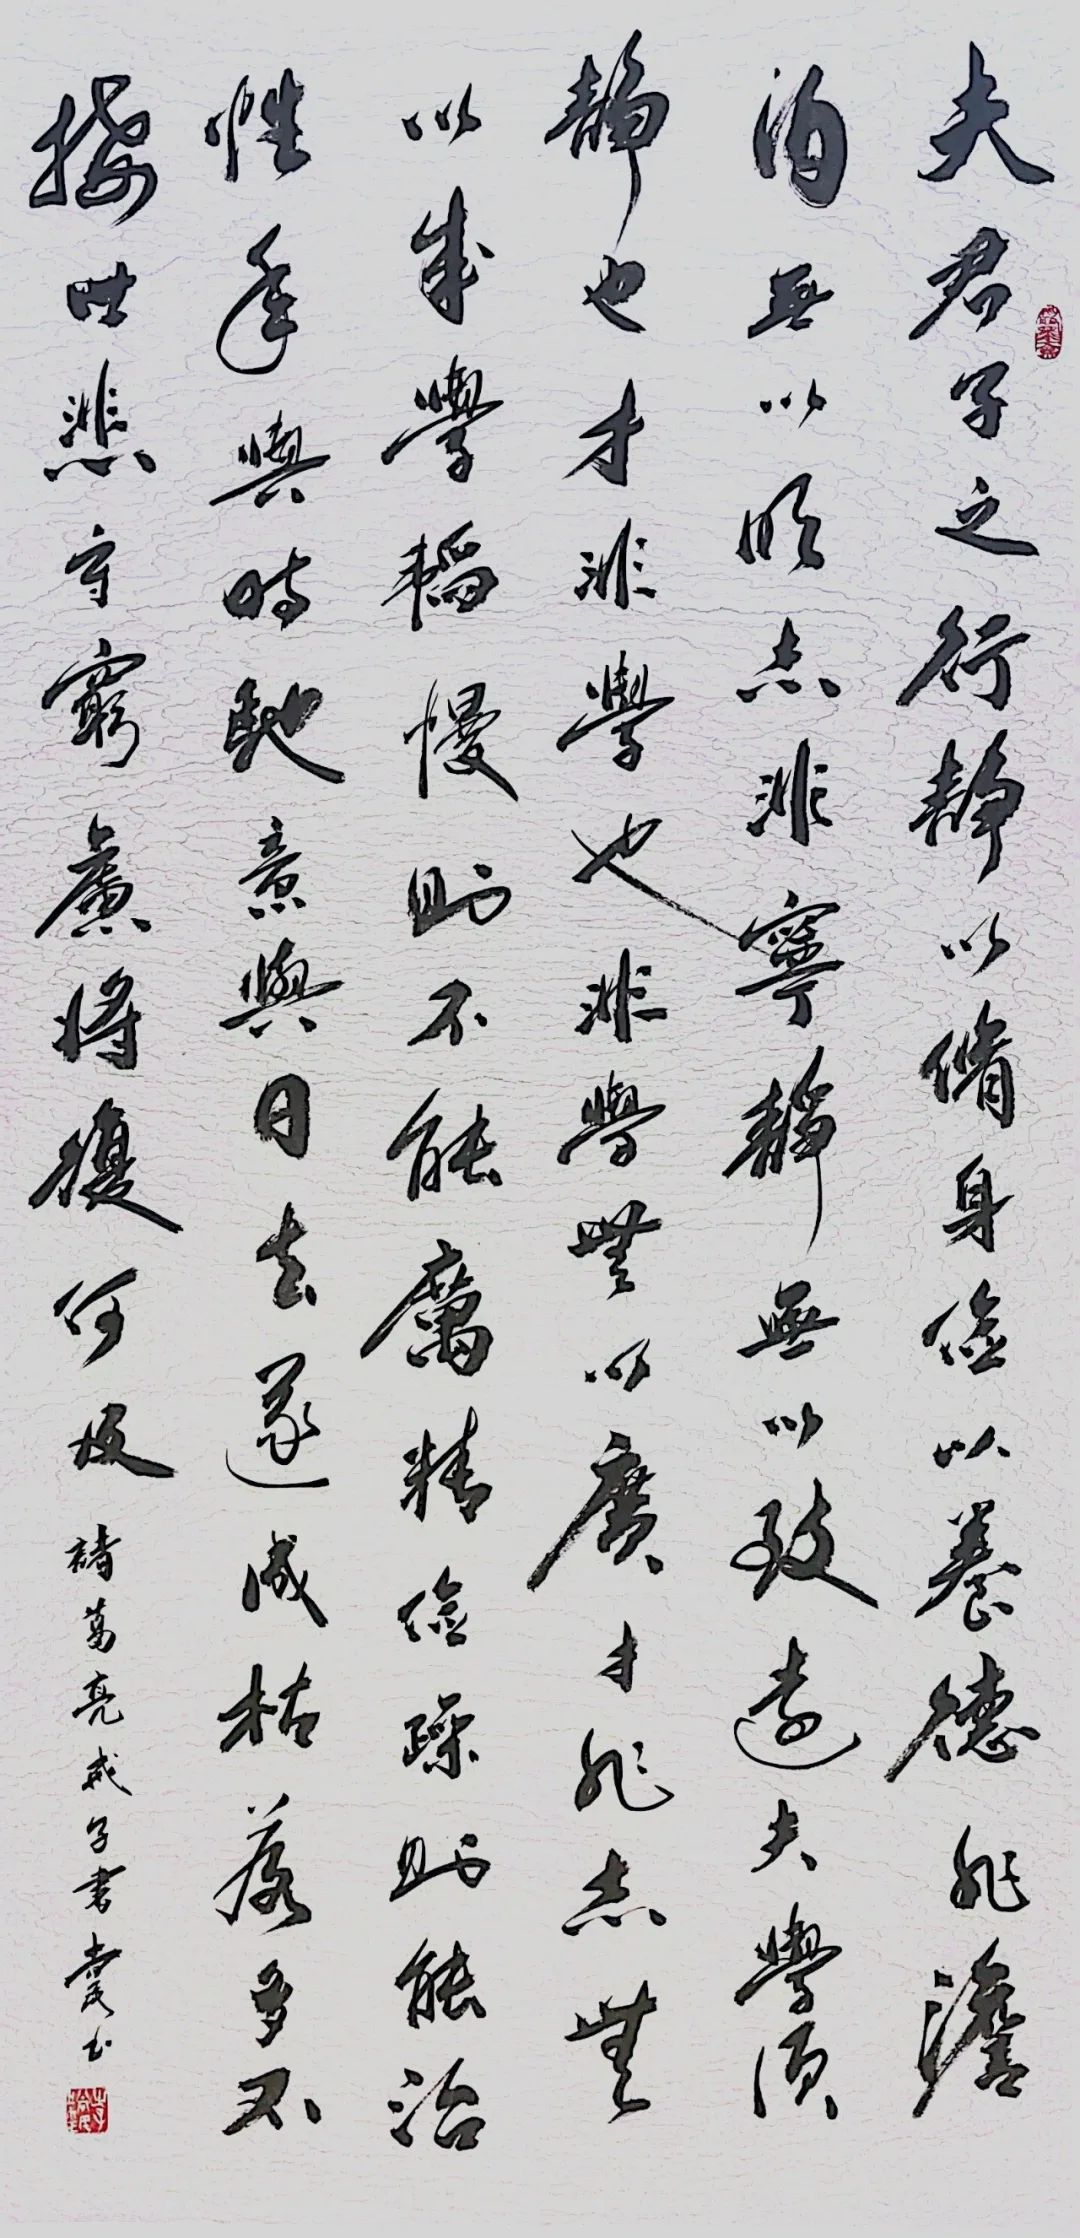 夫君子之行靜以脩身儉以養德非澹
泊無以明志非寧靜無以致遠夫學須
靜也才非學也非學無以廣才非志無
以成學韜慢則不能厲精儉躁則能治
性年與時馳意與日去遂成枯落多不
接世悲守窮廬將復何及
諸葛亮戒子書